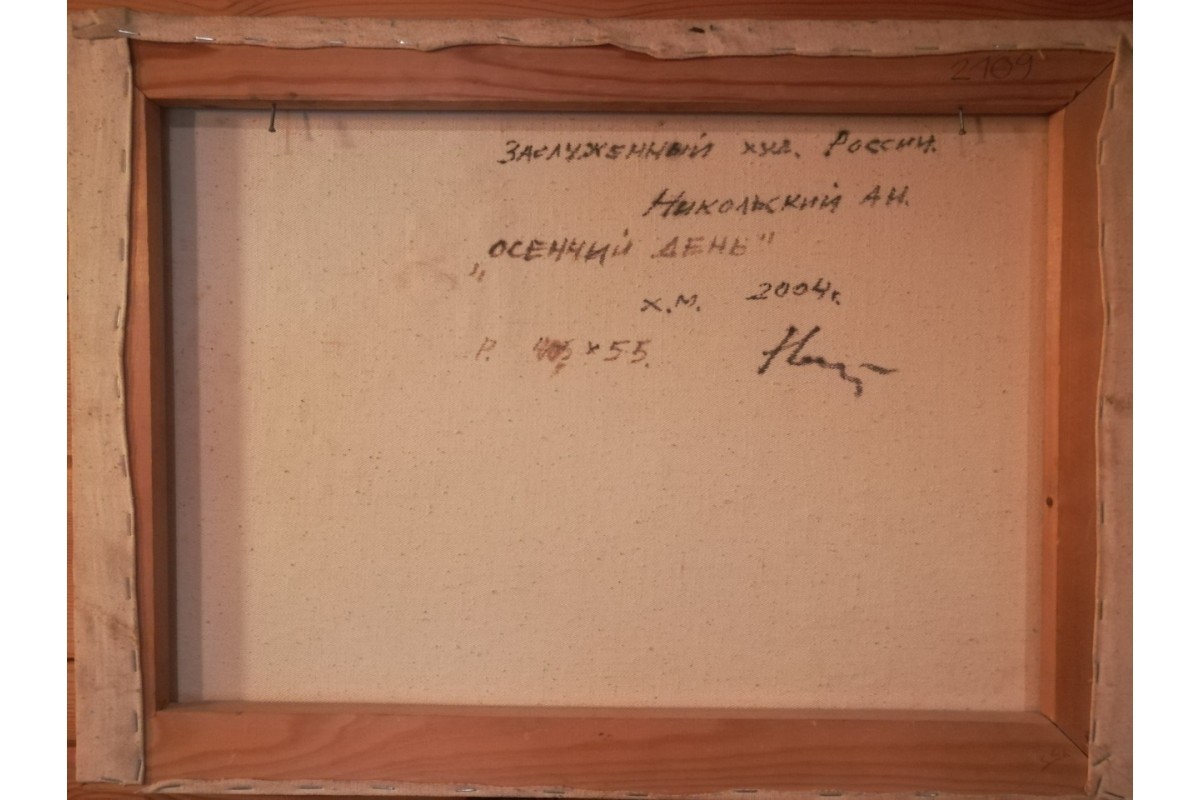 2109
Заслуженный худ. России.
Никольский А Н.
„Осенний день"
х.м. 2004г.
Р. × 55.